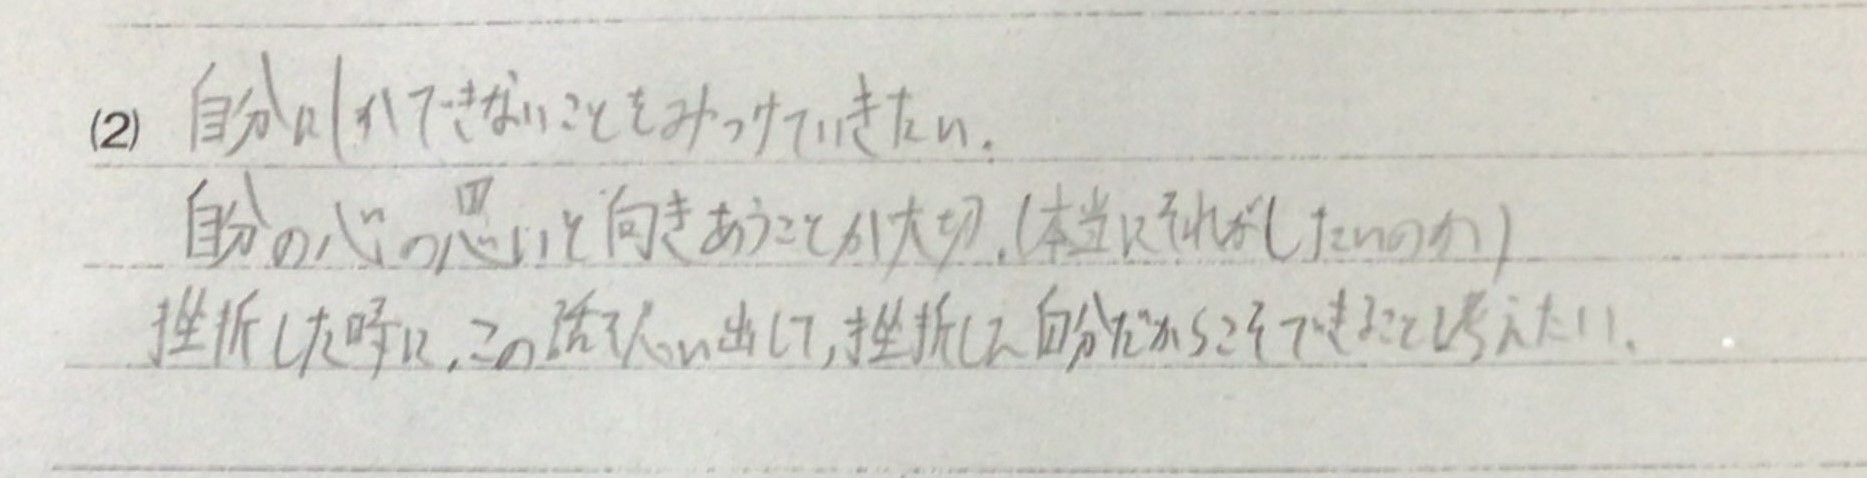 (2) 自分にしかできないことをみつけていきたい.
自分の心の思いと向きあうことが大切.(本当にそれがしたいのか)
挫折した時に,この話を思い出して,挫折した自分だからこそできること考えたい.